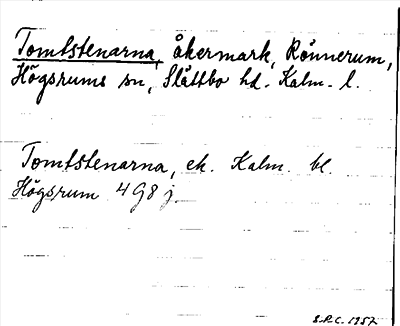 Tomtstenarna, åkermark, Rönnerum,
Högsrums sn, Slättbo hd. Kalm. l.
Tomtstenarna, ek. Kalm. bl.
Högsrum 4 G8 j.
S.P.C. 1957